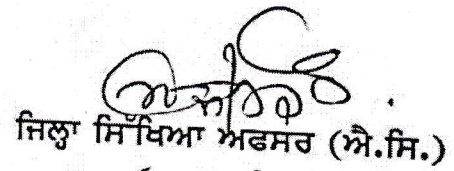 ਜਿਲ੍ਹਾ ਸਿੱਖਿਆ ਅਫਸਰ (ਐ.ਸਿ.)